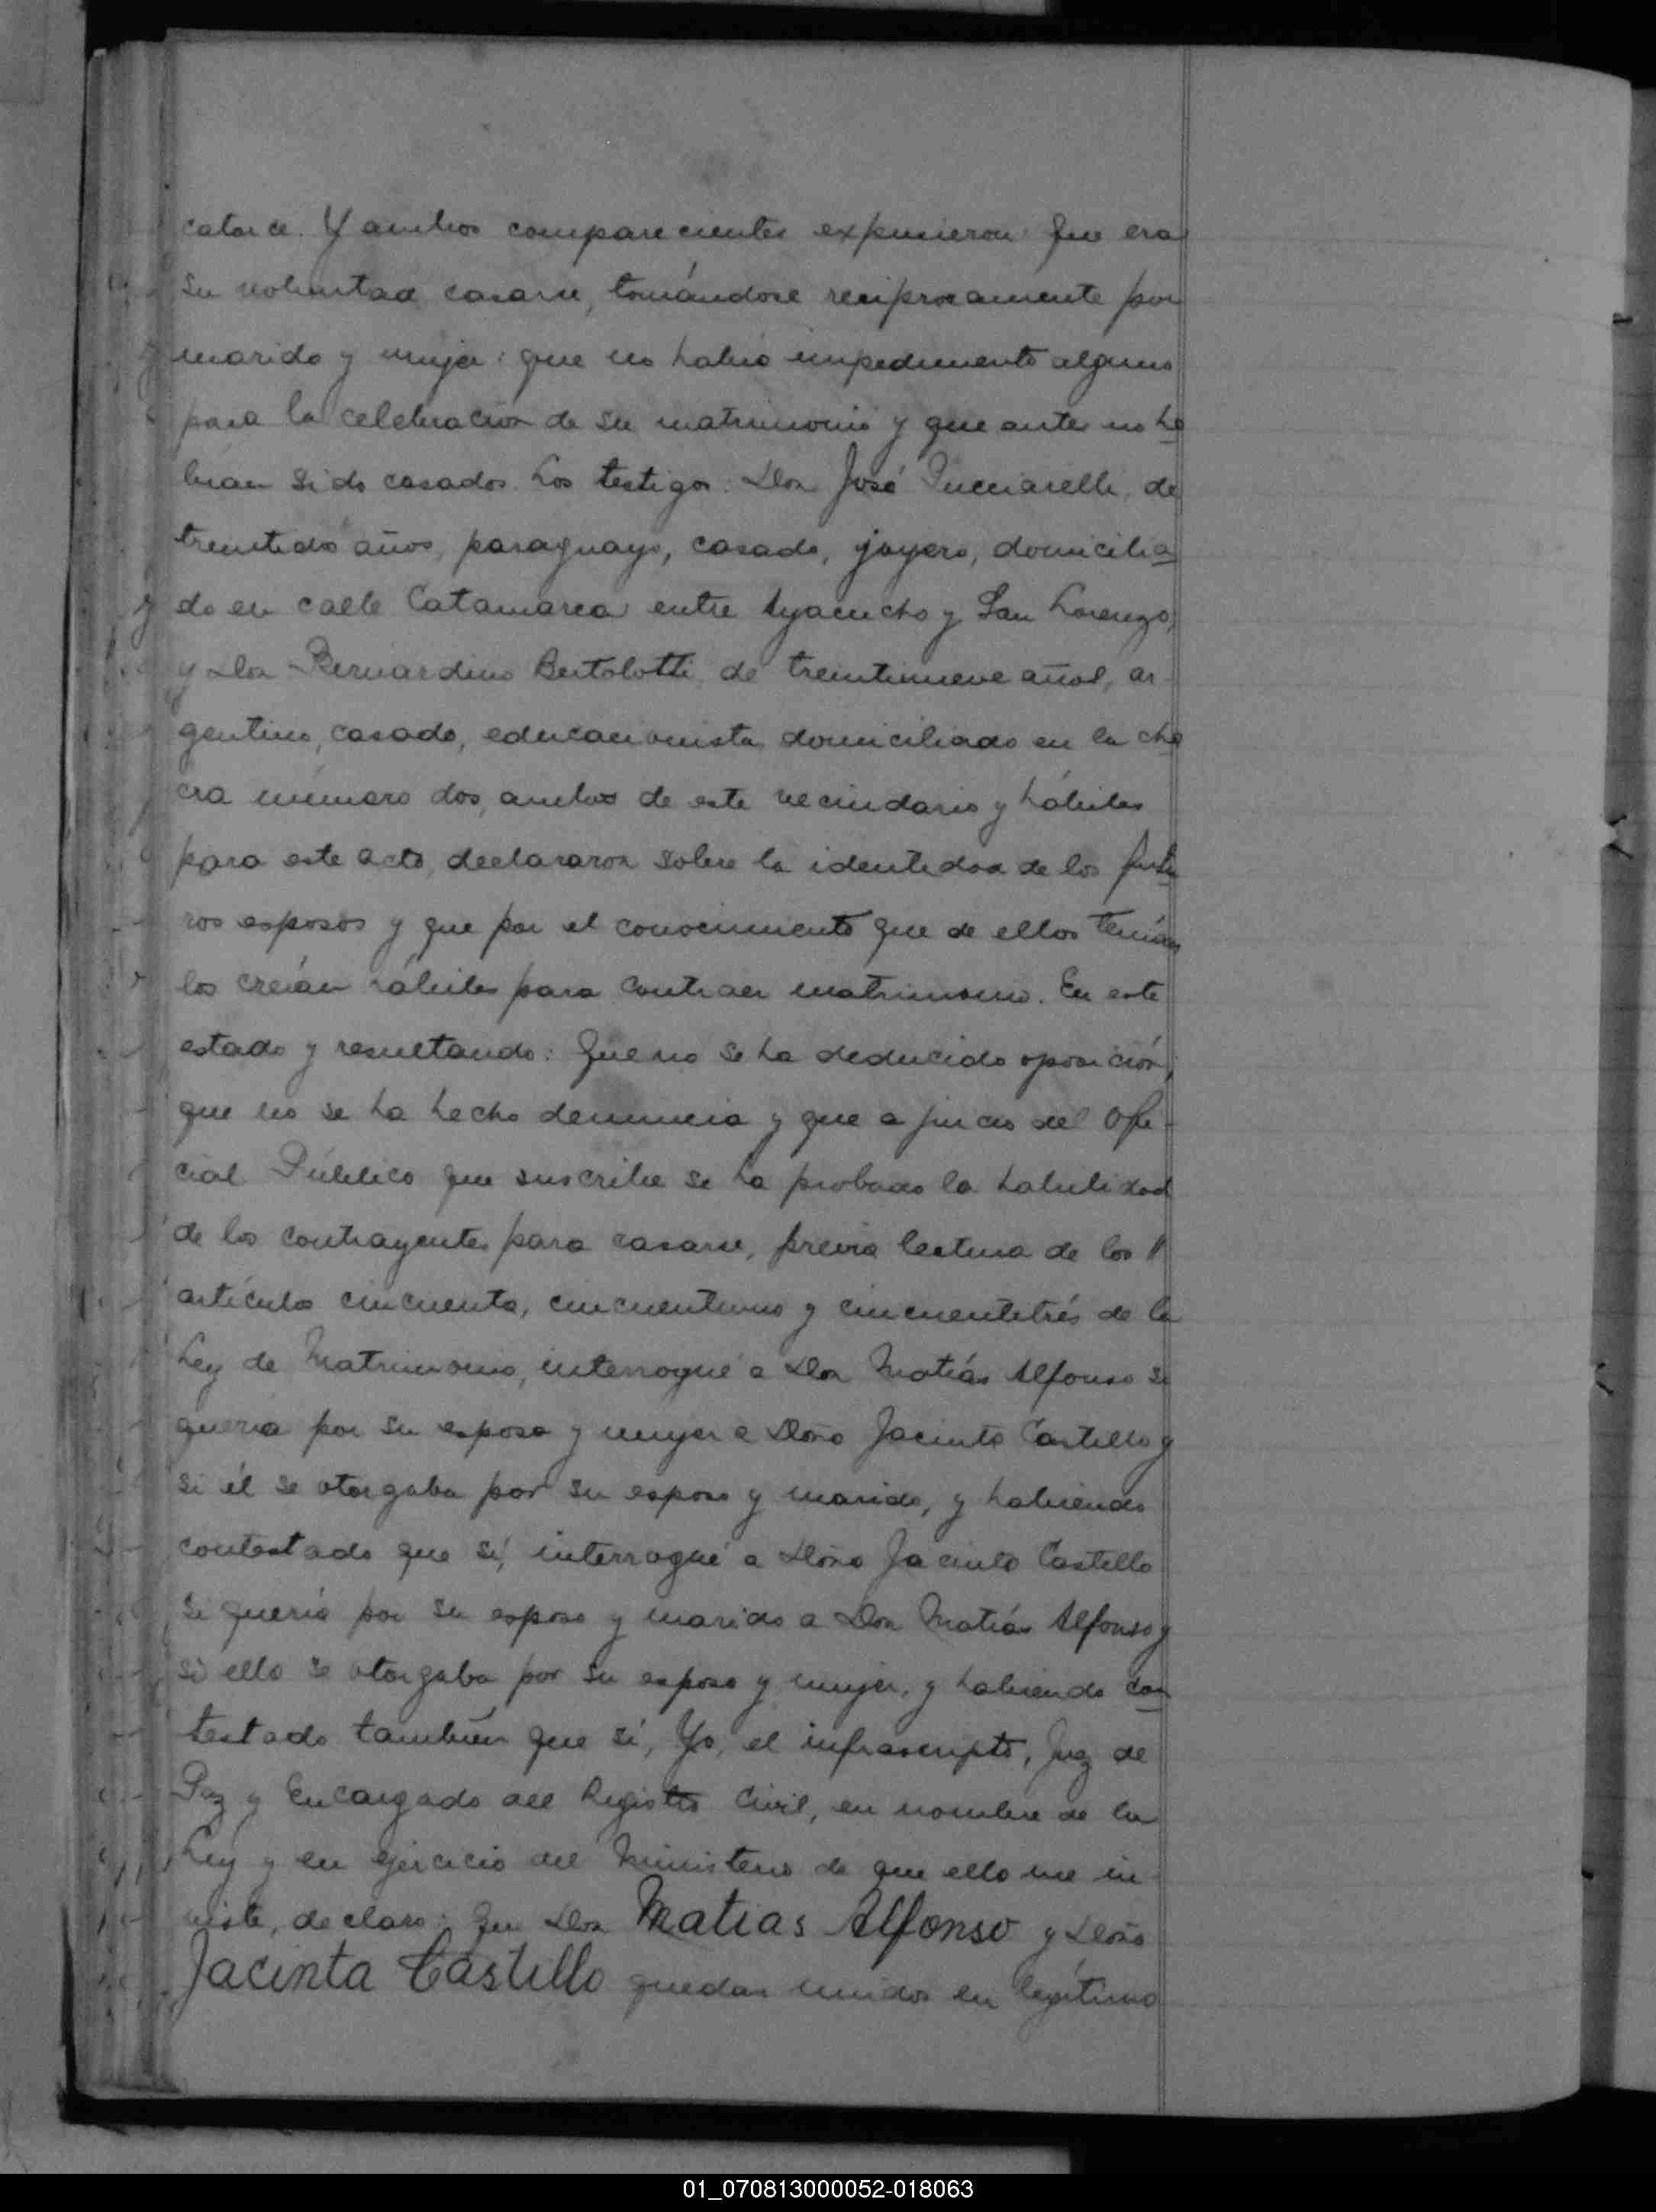 catorce. Y ambos comparecientes expusieron: Que era
su voluntad casarse, tomándose reciprocamente por
marido y mujer: que no había impedimento alguno
para la celebración de su matrimonio y que antes no ha
bían sido casados. Los testigos: Don José Pucciarelli, de
treintidos años, paraguayo, casado, joyero, domicilia
do en calle Catamarca entre Ayacucho y San Lorenzo,
y Don Bernardino Bertolotti, de treintinueve años, ar-
gentino, casado, educacionista, domiciliado en la cha
cra número dos, ambos de este vecindario y hábiles
para este acto, declararon sobre la identidad de los futu
ros esposos y que por el conocimiento que de ellos tenían
los creían hábiles para contraer matrimonio. En este
estado y resultando: Que no se ha deducido oposición,
que no se ha hecho denuncia y que a juicio del Ofi-
cial Público que suscribe se ha probado la habilidad
de los contrayentes para casarse, previa lectura de los "
artículos cincuenta, cincuentiuno y cincuentitrés de la
Ley de Matrimonio, interrogué a Don Matías Alfonso si
quería por su esposa y mujer a Doña Jacinta Castillo y
si él se otorgaba por su esposo y marido, y habiendo
contestado que sí, interrogué a Doña Jacinta Castillo
si quería por su esposo y marido a Don Matías Alfonso y
si ella se otorgaba por su esposa y mujer, y habiendo con
testado también que sí, Yo, el infrascripto, Juez de
Paz y Encargado del Registro Civil, en nombre de la
Ley y en ejercicio del Ministerio de que ella me in
viste, declaro: Que Don Matias Alfonso y Doña
Jacinta Castillo quedan unidos en legítimo
01_070813000052-018063